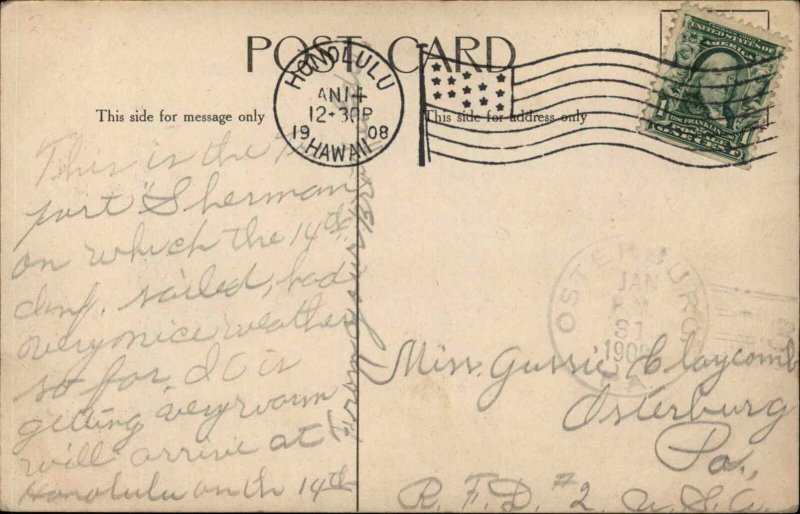 POST CARD
This side for message only
This side for address only
HONOLULU
JAN 14
12-30P
1908
HAWAII
UNITED STATES OF AMERICA
This is the
port "Sherman
on which the 14th
Inf. sailed, had
very nice weather
so far, it is
getting very warm
will arrive at
Honolulu on the 14th
OSTERBURG
JAN
31
1908
PA.
Miss. Gussie Claycomb
Osterburg
Pa.,
R. F. D. #2 U.S.A.